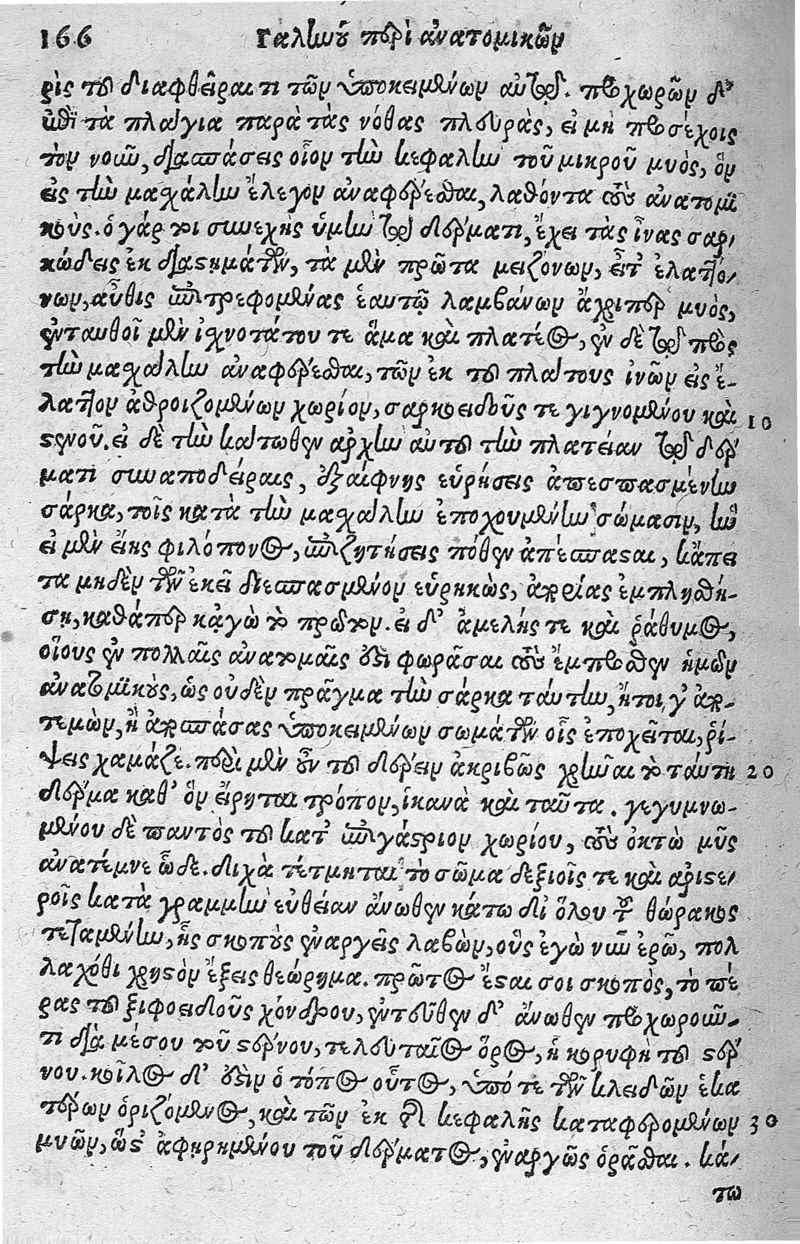 166 Γαληνοῦ περὶ ἀνατομικῶν
ρὶς τοῦ διαφθεῖραι τι τῶν ὑποκειμένων αὐτῷ. προχωρῶν δ'
ἐπὶ τὰ πλάγια παρὰ τὰς νόθας πλευρὰς, εἰ μὴ προσέχοις
τὸν νοῦν, διασπάσεις οἷον τὴν κεφαλὴν τοῦ μικροῦ μυὸς, ὃν
εἰς τὴν μαχάλην ἔλεγον ἀναφέρεσθαι, λαθόντα τοὺς ἀνατομι
κούς. ὁ γάρ τοι συνεχὴς ὑμὴν τῷ δέρματι, ἔχει τὰς ἶνας σαρ-
κώδεις ἐκ διαστημάτων, τὰ μὲν πρῶτα μειζόνων, εἶτ' ἐλαττό-
νων, αὖθις ἐπιτρεφομένας ἑαυτῷ λαμβάνων ἄχριπερ μυὸς,
ἐνταυθοῖ μὲν ἰχνοτάτου τε ἅμα καὶ πλατέος, ἐν δὲ τῷ πρὸς
τὴν μαχάλην ἀναφέρεσθαι, τῶν ἐκ τοῦ πλάτους ἰνῶν εἰς ἔ-
λαττον ἀθροιζομένων χωρίον, σαρκοειδοῦς τε γιγνομένου καὶ 10
στενοῦ. εἰ δὲ τὴν κάτωθεν ἀρχὴν αὐτοῦ τὴν πλατείαν τῷ δέρ
ματι συναποδείραις, ἐξαίφνης εὑρήσεις ἀπεσπασμένην
σάρκα, τοῖς κατὰ τὴν μαχάλην ἐποχουμένην σώμασιν, ἣν
εἰ μὲν εἴης φιλόπονος, ἐπιζητήσεις πόθεν ἀπέσπασται, κἄπει
τα μηδὲν τῶν ἐκεῖ διεσπασμένον εὑρηκὼς, ἀπορίας ἐμπλησθή-
σῃ, καθάπερ κἀγὼ τὸ πρῶτον. εἰ δ' ἀμελής τε καὶ ῥάθυμος,
οἵους ἐν πολλαῖς ἀνατομαῖς ἔστι φωρᾶσαι τοὺς ἔμπροσθεν ἡμῶν
ἀνατομικοὺς, ὡς οὐδὲν πρᾶγμα τὴν σάρκα ταύτην, ἤτοι γ' ἀπο-
τεμὼν, ἢ ἀποσπάσας ὑποκειμένων σωμάτων οἷς ἐποχεῖται, ῥί-
ψεις χαμάζε. περὶ μὲν οὖν τοῦ δέρειν ἀκριβῶς χρῆναι τὸ ταύτῃ 20
δέρμα καθ' ὃν εἴρηται τρόπον, ἱκανὰ καὶ ταῦτα. γεγυμνω-
μένου δὲ παντὸς τοῦ κατ' ἐπιγάστριον χωρίου, τοὺς ὀκτὼ μῦς
ἀνατέμνε ὧδε. διχὰ τέτμηται τὸ σῶμα δεξιοῖς τε καὶ ἀριστε-
ροῖς κατὰ γραμμὴν εὐθεῖαν ἄνωθεν κάτω δι' ὅλου τοῦ θώρακος
τεταμένην, ἧς σκοποὺς ἐναργεῖς λαβὼν, οὓς ἐγὼ νῦν ἐρῶ, πολ
λαχόθι χρηστὸν ἕξεις θεώρημα. πρῶτος ἔσται σοι σκοπὸς, τὸ πέ
ρας τοῦ ξιφοειδοῦς χόνδρου, ἐντεῦθεν δ' ἄνωθεν προχωροῦν-
τι διὰ μέσου τοῦ στέρνου, τελευταῖος ὅρος, ἡ κορυφὴ τοῦ στέρ
νου. κοῖλος δ' ἐστὶν ὁ τόπος οὗτος, ὑπό τε τῶν κλειδῶν ἑκα
τέρων ὁριζόμενος, καὶ τῶν ἐκ τῆς κεφαλῆς καταφερομένων 30
μυῶν, ὥστ' ἀφῃρημένου τοῦ δέρματος, ἐναργῶς ὁρᾶσθαι. κά-
τω